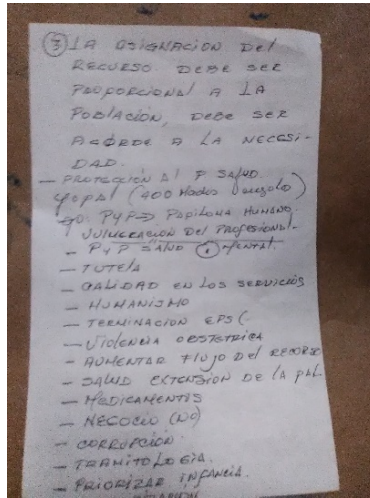 ③ LA ASIGNACIÓN DEL
RECURSO DEBE SER
PROPORCIONAL A LA
POBLACIÓN, DEBE SER
ACORDE A LA NECESI-
DAD.
— PROTECCIÓN AL P SALUD.
YOPAL (400 Hados
PYP => PAPILOMA HUMANO.
VULNERACIÓN DEL PROFESIONAL-
- PYP SALUD MENTAL.
- TUTELA
- CALIDAD EN LOS SERVICIOS
- HUMANISMO
- TERMINACIÓN EPS(
- VIOLENCIA OBSTETRICA
- AUMENTAR FLUJO DEL RECURSO
- SALUD EXTENSIÓN DE LA PAL.
- MEDICAMENTOS
- NEGOCIO (NO)
- CORRUPCIÓN.
- TRAMITOLOGÍA.
- PRIORIZAR INFANCIA.